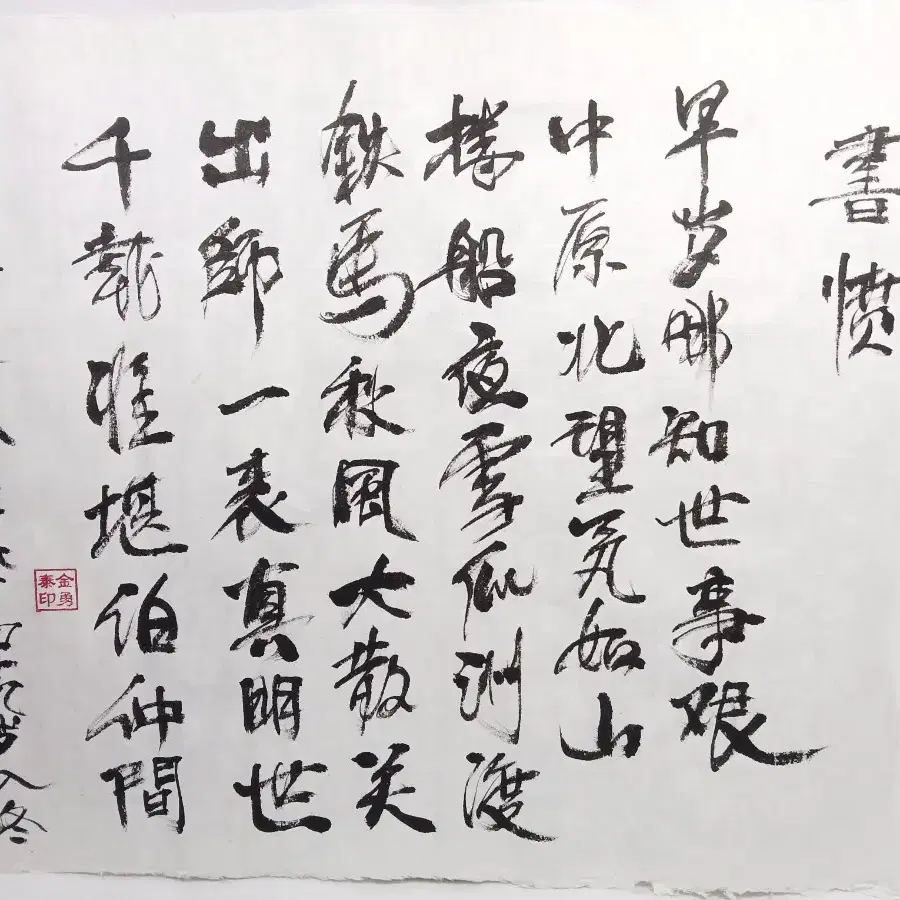 書愤
早岁那知世事艰
中原北望炁如山
楼船夜雪瓜洲渡
鉄馬秋風大散关
出師一表真明世
千載谁堪伯仲間
入冬
金勇泰印